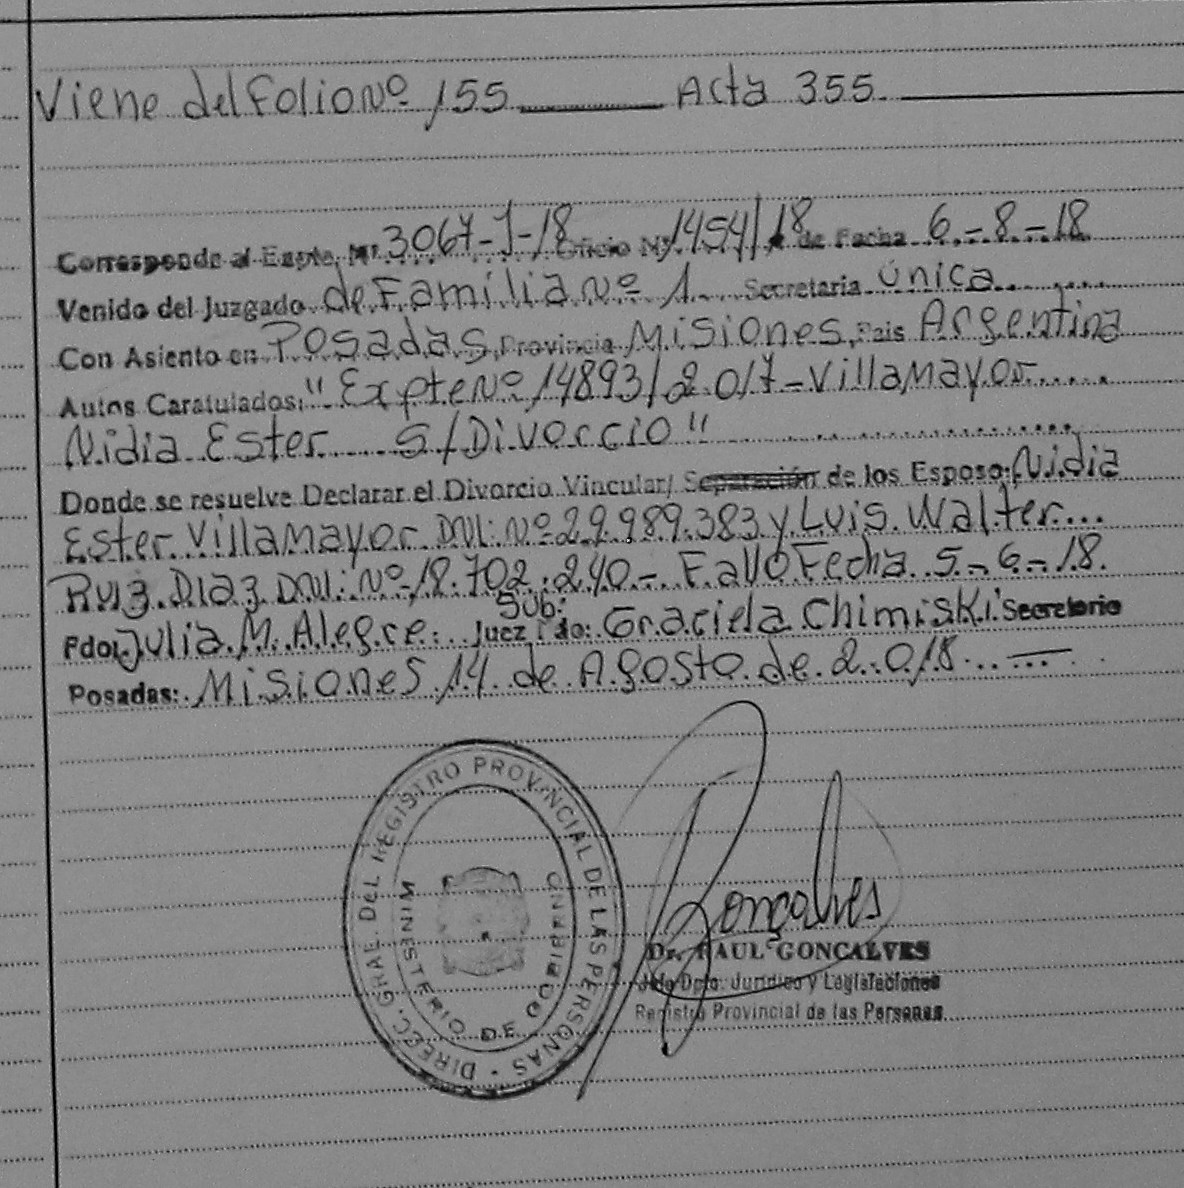 Viene del Folio Nº 155 Acta 355.
Corresponde al Expte. Nº 3067-J-18 Oficio Nº 1454/18 de Fecha 6-8-18
Venido del Juzgado de Familia Nº 1. Secretaria Única
Con Asiento en Posadas, Provincia Misiones, Pais Argentina
Autos Caratulados: "Expte Nº 14893/2.017-Villamayor
Nidia Ester S/Divorcio"
Donde se resuelve Declarar el Divorcio Vincular/ Separación de los Esposo: Nidia
Ester Villamayor DNI: Nº 29.989.383 y Luis Walter
Ruiz Diaz DNI: Nº 18.702.240- Fallo Fecha 5-6-18.
Fdo: Julia M. Alegre. Juez Fdo: Sub: Graciela Chimiski Secretario
Posadas: Misiones 14 de Agosto de 2.018
DIRECC. GRAL. DEL REGISTRO PROVINCIAL DE LAS PERSONAS
MINISTERIO DE GOBIERNO
Gonçalves
Dr. RAUL GONCALVES
Jefe Dpto. Jurídico y Legislaciones
Registro Provincial de las Personas